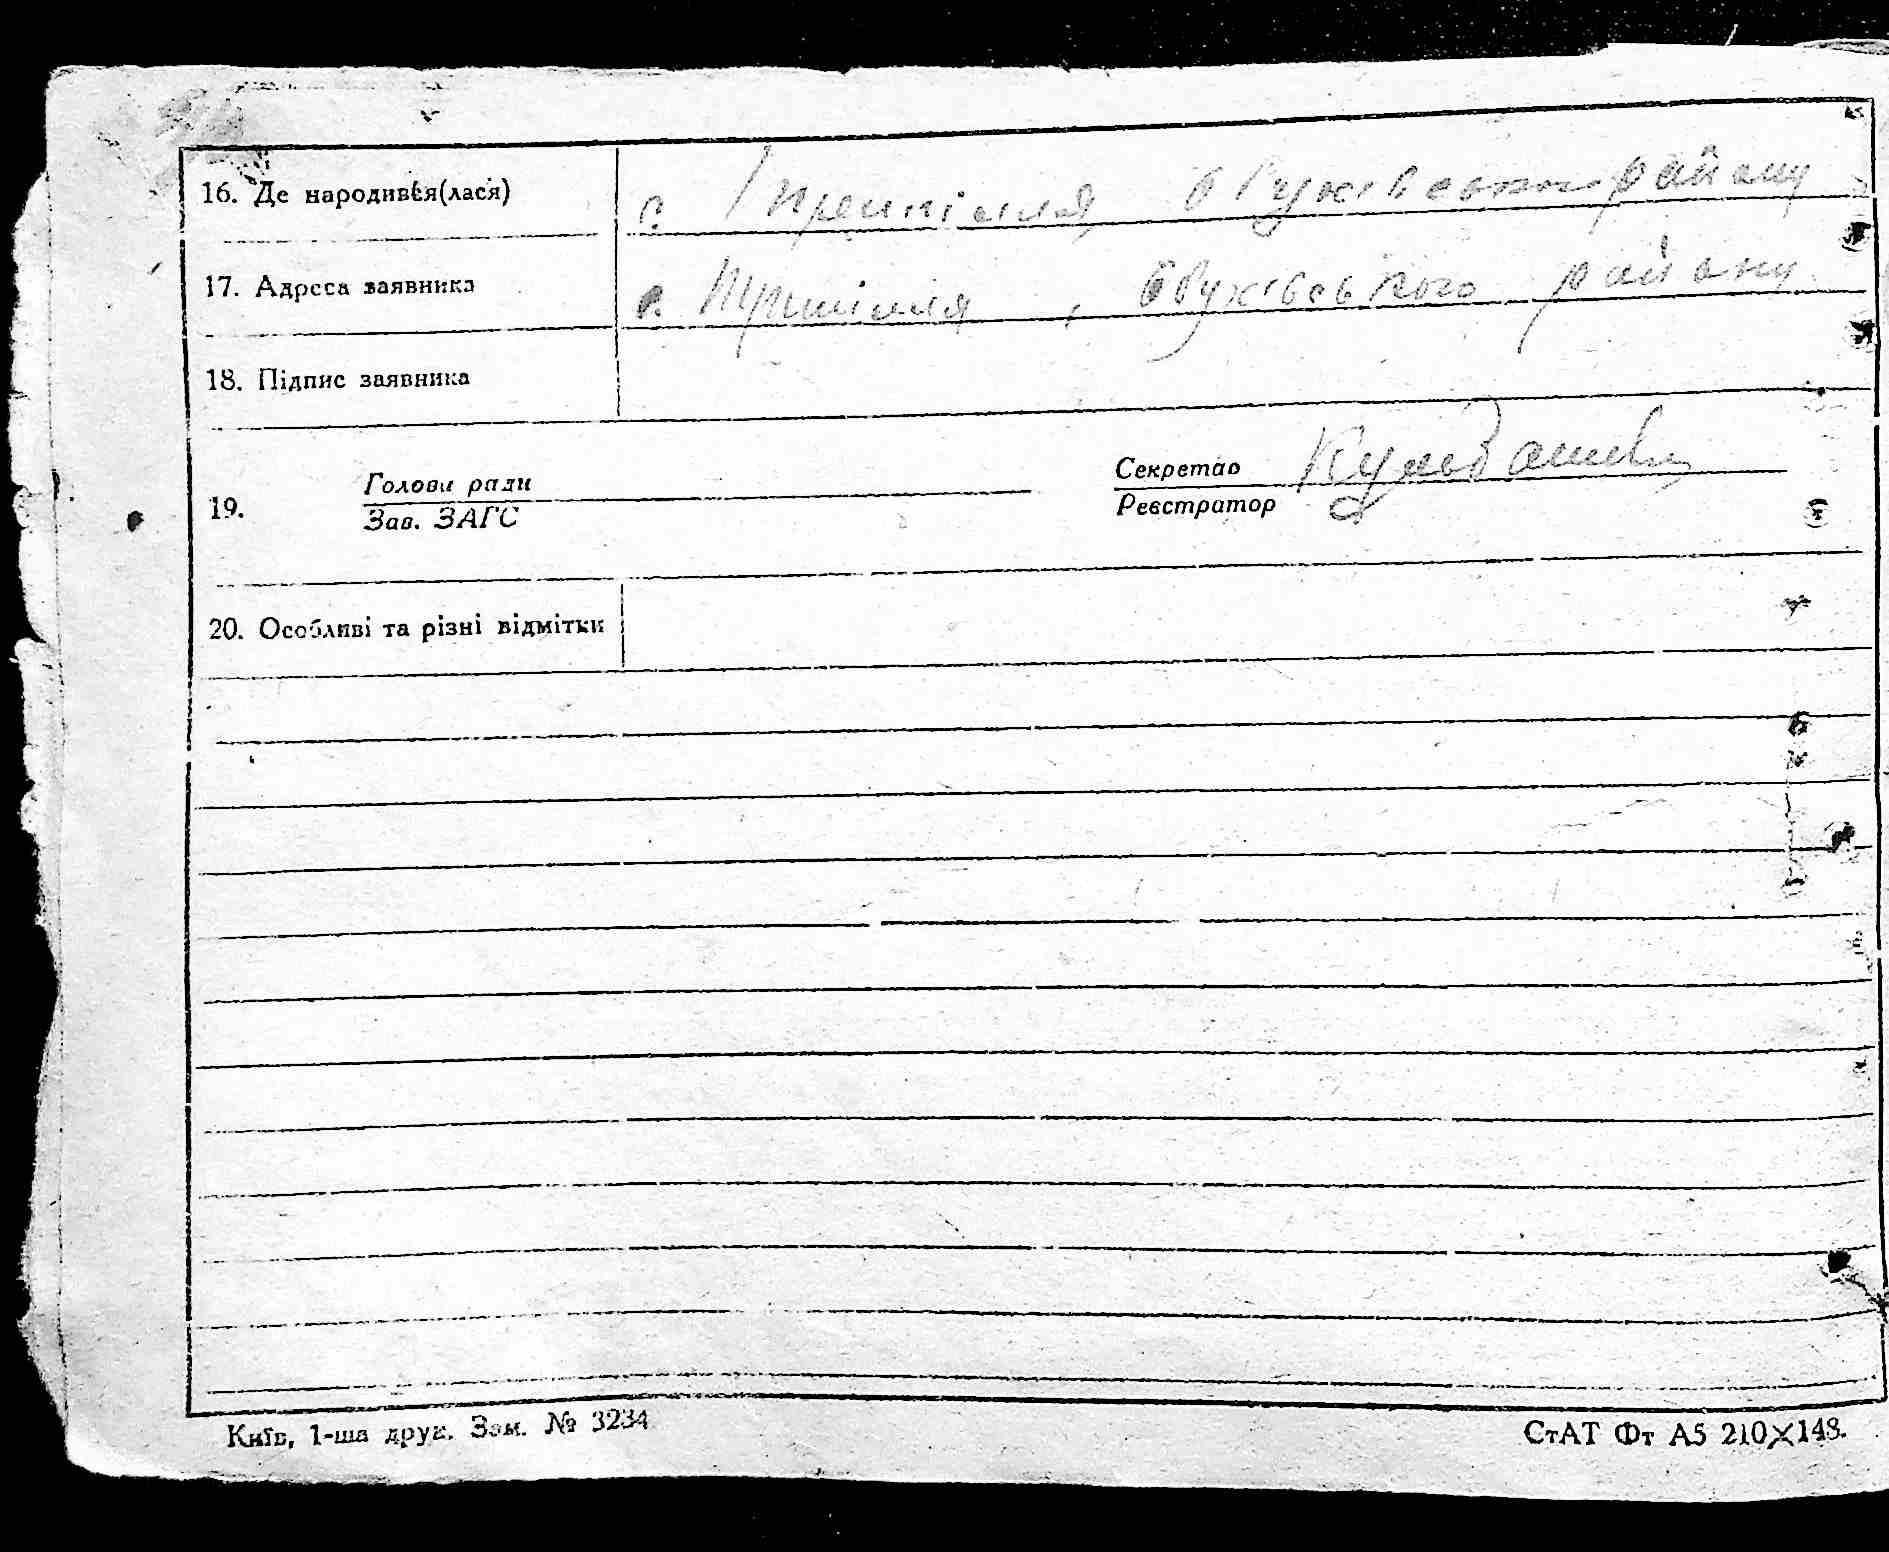 16. Де народився(лася) с. Трипілля Обухівського району
17. Адреса заявника с. Трипілля, Обухівського району
18. Підпис заявника
Голови ради Секретар
19. Зав. ЗАГС Реєстратор
20. Особливі та різні відмітки
Київ, 1-ша друк. Зам. № 3234 СтАТ Фт А5 210×148.